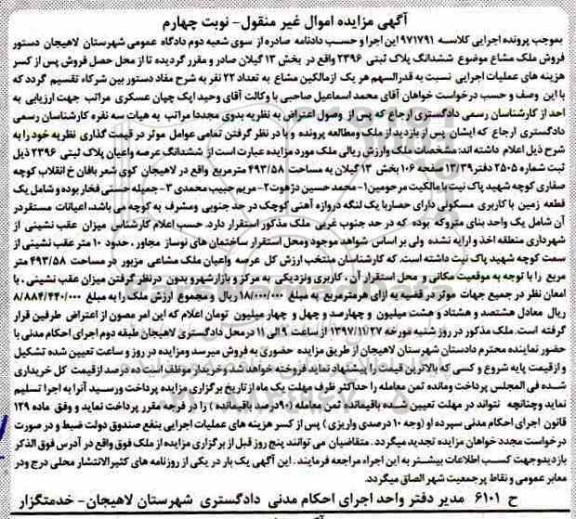 آگهی مزایده اموال غیر منقول- نوبت چهارم
بموجب پرونده اجرایی کلاسه ۹۷۱۷۹۱ این اجرا و حسب دادنامه صادره از سوی شعبه دوم دادگاه عمومی شهرستان لاهیجان دستور
فروش ملک مشاع موضوع ششدانگ پلاک ثبتی ۲۳۹۶ واقع در بخش ۱۳ گیلان صادر و مقرر گردیده تا از محل حصل فروش پس از کسر
هزینه های عملیات اجرایی نسبت به قدرالسهم هر یک ازمالکین مشاع به تعداد ۲۲ نفر به شرح مفاد دستور بین شرکاء تقسیم گردد که
با این وصف و حسب درخواست خواهان آقای محمد اسماعیل صاحبی با وکالت آقای وحید ایک چیان عسکری مراتب جهت ارزیابی به
احد از کارشناسان رسمی دادگستری ارجاع که پس از وصول اعتراض به نظریه بدوی مجددا مراتب به هیات سه نفره کارشناسان رسمی
دادگستری ارجاع که ایشان پس از بازدید از ملک ومطالعه پرونده و با در نظر گرفتن تمامی عوامل موثر در قیمت گذاری نظریه خود را به
شرح ذیل اعلام داشته اند: مشخصات ملک وارزش ریالی ملک مورد مزایده عبارت است از ششدانگ عرصه واعیان پلاک ثبتی ۲۳۹۶ ذیل
ثبت شماره ۲۵۰۵ دفتر۱۳/۳۹ صفحه ۱۰۶ بخش ۱۳ گیلان به مساحت ۴۹۳/۵۸ مترمربع واقع در لاهیجان کوی شعر بافان خ انقلاب کوچه
صفاری کوچه شهید پاک نیت با مالکیت مرحومین۱- محمد حسین دژهوت۲- مریم حبیب محمدی ۳- جمیله حسنی فخار بوده و شامل یک
قطعه زمین با کاربری مسکونی دارای حصاربا یک لنگه دروازه آهنی کوچک در حد جنوبی ومشرف به کوچه می باشد، اعیانات مستقردر
آن شامل یک واحد بنای متروکه بوده که در حد جنوب غربی ملک مذکور استقرار دارد. حسب اعلام کارشناس میزان عقب نشینی از
شهرداری منطقه اخذ و ارایه نشده ولی بر اساس شواهد موجود ومحل استقرار ساختمان های نوساز مجاور ، حدود ۱۰ متر عقب نشینی از
سمت کوچه شهید پاک نیت داشته است. که کارشناسان منتخب ارزش کل عرصه واعیان ملک مشاعی مزبور در مساحت ۴۹۳/۵۸ متر
مربع را با توجه به موقعیت مکانی و محل استقرار آن ، کاربری ونزدیکی به مرکز و بازارشهرو بدون درنظر گرفتن میزان عقب نشینی ، با
امعان نظر در جمیع جهات موثر در قضیه به ازای هرمترمربع به مبلغ ۱۸/۰۰۰/۰۰۰ ریال و مجموع ارزش ملک را به مبلغ ۸/۸۸۴/۴۴۰/۰۰۰
ریال معادل هشتصد و هشتاد و هشت میلیون و چهارصد و چهل و چهار میلیون تومان اعلام که این امر مصون از اعتراض طرفین قرار
گرفته است. ملک مذکور در روز شنبه مورخه ۱۳۹۷/۱۱/۲۷ ازساعت ۹ الی ۱۱ در محل دادگستری لاهیجان طبقه دوم اجرای احکام مدنی با
حضور نماینده محترم دادستان شهرستان لاهیجان از طریق مزایده حضوری به فروش میرسد ومزایده در روز و ساعت تعیین شده تشکیل
و ازقیمت پایه شروع و کسی که بالاترین قیمت را پیشنهاد نماید فروخته خواهد شد وخریدار موظف است ده درصد ازقیمت کل خریداری
شده فی المجلس پرداخت ومانده ثمن معامله را حداکثر ظرف مهلت یک ماه از تاریخ برگزاری مزایده پرداخت ورسید آنرا به اجرا تسلیم
نماید وچنانچه نتواند در مهلت تعیین شده باقیمانده ثمن معامله (۹۰درصد باقیمانده ) را در فرجه مقرر پرداخت نماید و وفق ماده ۱۲۹
قانون اجرای احکام مدنی سپرده او (وجه ۱۰ درصدی واریزی ) پس از کسر هزینه های عملیات اجرایی بنفع صندوق دولت ضبط و در صورت
درخواست مجدد خواهان مزایده تجدید میگردد. متقاضیان می توانند پنج روز قبل از برگزاری مزایده از ملک فوق واقع در آدرس فوق الذکر
بازدیدوجهت کسب اطلاعات بیشتر به این اجراء مراجعه فرمایند . این آگهی یک بار در یکی از روزنامه های کثیرالانتشار محلی درج ودر
معابر عمومی و نقاط پرجمعیت شهر الصاق میگردد.
ح ۶۱۰۱ مدیر دفتر واحد اجرای احکام مدنی دادگستری شهرستان لاهیجان- خدمتگزار